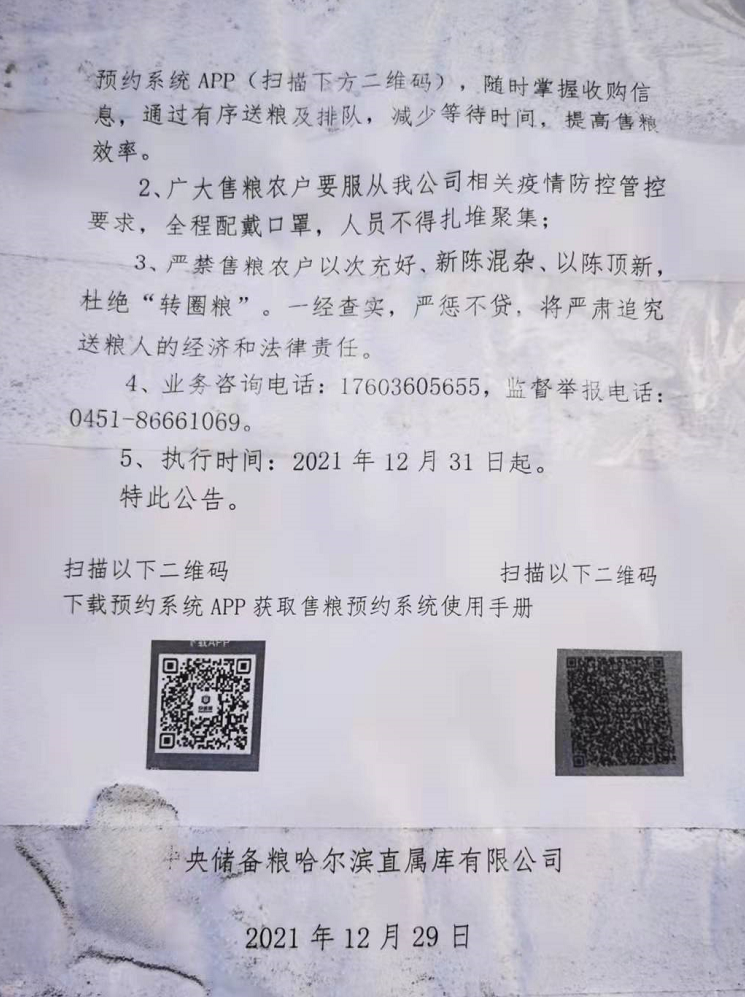 预约系统 APP（扫描下方二维码），随时掌握收购信
息，通过有序送粮及排队，减少等待时间，提高售粮
效率。
2、广大售粮农户要服从我公司相关疫情防控管控
要求，全程配戴口罩，人员不得扎堆聚集；
3、严禁售粮农户以次充好、新陈混杂、以陈顶新，
杜绝“转圈粮”。一经查实，严惩不贷，将严肃追究
送粮人的经济和法律责任。
4、业务咨询电话：17603605655，监督举报电话：
0451-86661069。
5、执行时间：2021 年 12 月 31 日起。
特此公告。
扫描以下二维码 扫描以下二维码
下载预约系统 APP 获取售粮预约系统使用手册
下载APP
央储备粮哈尔滨直属库有限公司
2021 年 12 月 29 日